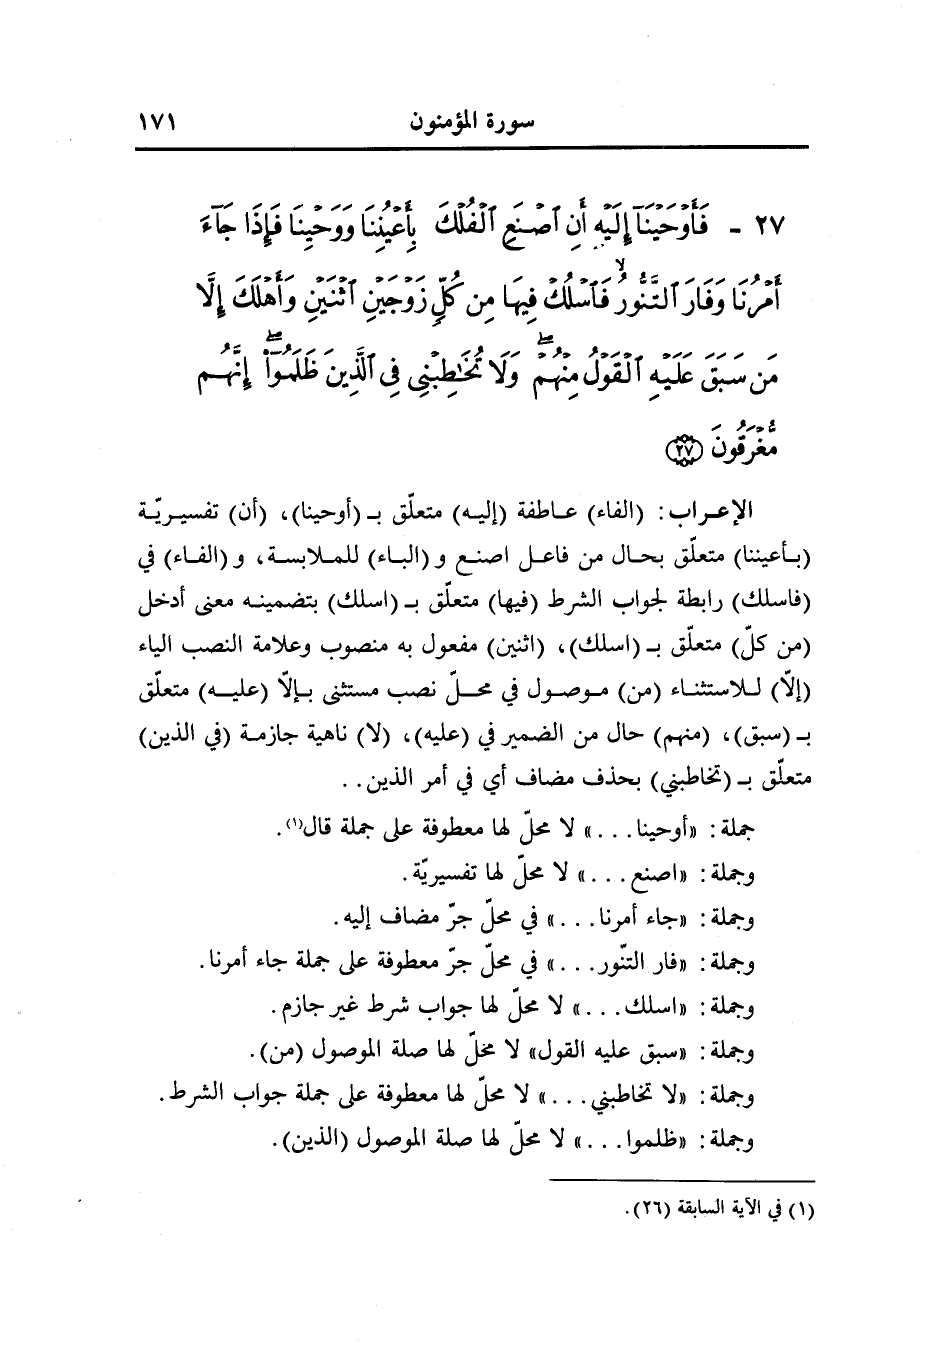 سورة المؤمنون ١٧١
٢٧ - فَأَوْحَيْنَآ إِلَيْهِ أَنِ ٱصْنَعِ ٱلْفُلْكَ بِأَعْيُنِنَا وَوَحْيِنَا فَإِذَا جَآءَ
أَمْرُنَا وَفَارَ ٱلتَّنُّورُ ۙ فَٱسْلُكْ فِيهَا مِن كُلٍّ زَوْجَيْنِ ٱثْنَيْنِ وَأَهْلَكَ إِلَّا
مَن سَبَقَ عَلَيْهِ ٱلْقَوْلُ مِنْهُمْ ۖ وَلَا تُخَٰطِبْنِى فِى ٱلَّذِينَ ظَلَمُوٓا۟ ۖ إِنَّهُم
مُّغْرَقُونَ ﴿٢٧﴾
الإعراب: (الفاء) عاطفة (إليه) متعلّق بـ (أوحينا)، (أن) تفسيريّة
(بأعيننا) متعلّق بحال من فاعل اصنع و (الباء) للملابسة، و (الفاء) في
(فاسلك) رابطة لجواب الشرط (فيها) متعلّق بـ (اسلك) بتضمينه معنى أدخل
(من كلّ) متعلّق بـ (اسلك)، (اثنين) مفعول به منصوب وعلامة النصب الياء
(إلّا) للاستثناء (من) موصول في محلّ نصب مستثنى بإلّا (عليه) متعلّق
بـ (سبق)، (منهم) حال من الضمير في (عليه)، (لا) ناهية جازمة (في الذين)
متعلّق بـ (تخاطبني) بحذف مضاف أي في أمر الذين..
جملة: «أوحينا...» لا محلّ لها معطوفة على جملة قال(١).
وجملة: «اصنع...» لا محلّ لها تفسيريّة.
وجملة: «جاء أمرنا...» في محلّ جرّ مضاف إليه.
وجملة: «فار التنّور...» في محلّ جرّ معطوفة على جملة جاء أمرنا.
وجملة: «اسلك...» لا محلّ لها جواب شرط غير جازم.
وجملة: «سبق عليه القول» لا مخلّ لها صلة الموصول (من).
وجملة: «لا تخاطبني...» لا محلّ لها معطوفة على جملة جواب الشرط.
وجملة: «ظلموا...» لا محلّ لها صلة الموصول (الذين).
(١) في الآية السابقة (٢٦).